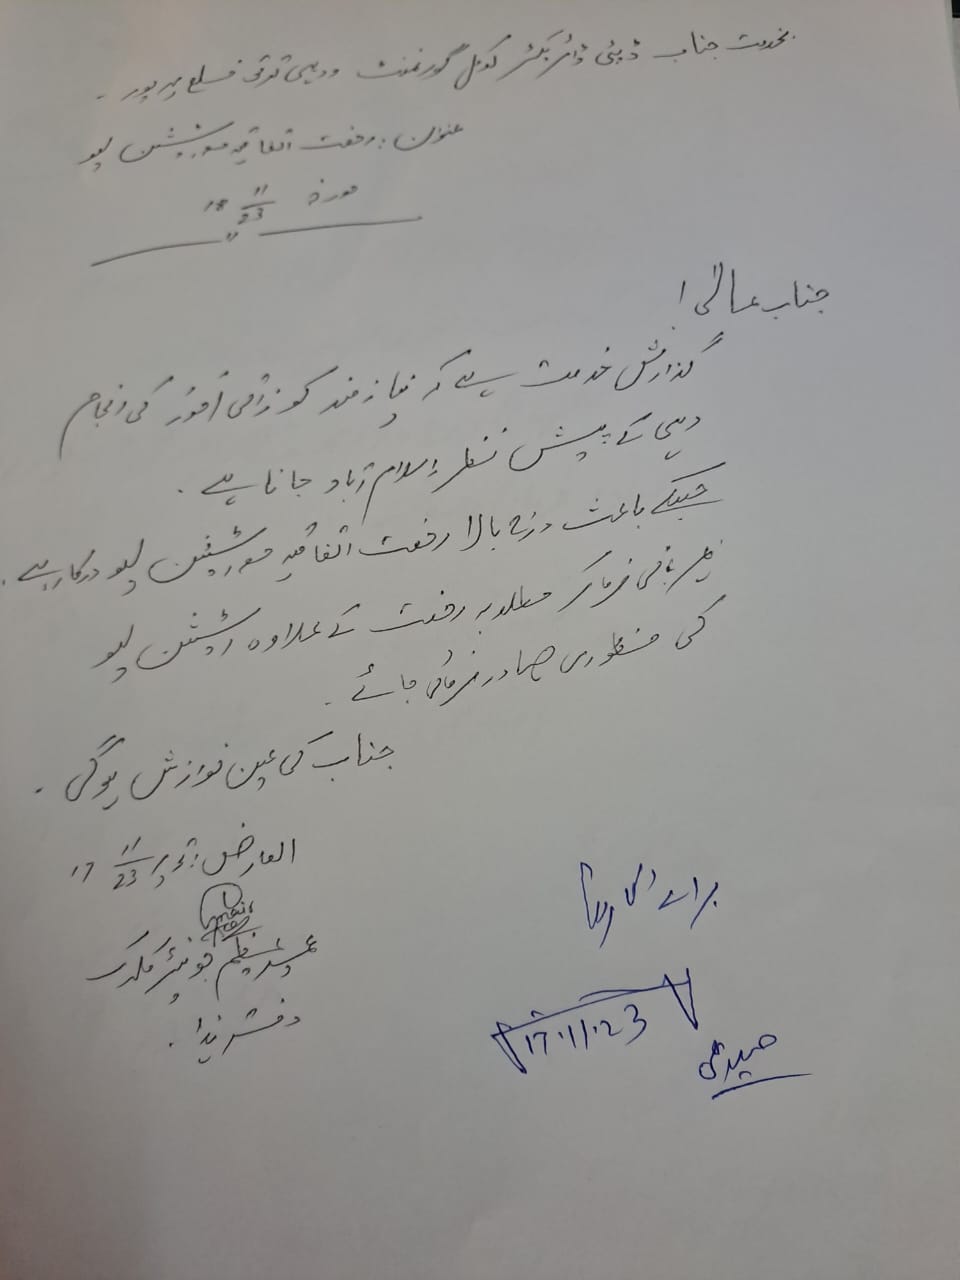 بخدمت جناب ڈپٹی ڈائریکٹر لوکل گورنمنٹ و دیہی ترقی ضلع میرپور۔
عنوان: رخصت اتفاقیہ معہ اسٹیشن لیو
مورخہ 18 11/23
جناب عالی!
گذارش خدمت ہے کہ نیازمند کو ذاتی امور کی انجام
دہی کے پیش نظر اسلام آباد جانا ہے۔
جسکے باعث درج بالا رخصت اتفاقیہ معہ اسٹیشن لیو درکار ہے۔
مہربانی فرما کر مطلوبہ رخصت کے علاوہ اسٹیشن لیو
کی منظوری صادر فرمائی جائے۔
جناب کی عین نوازش ہوگی۔
العارض: تحریر 17 11/23
جونیئر کلرک
دفتر ہذا۔
برائے
17.11.23